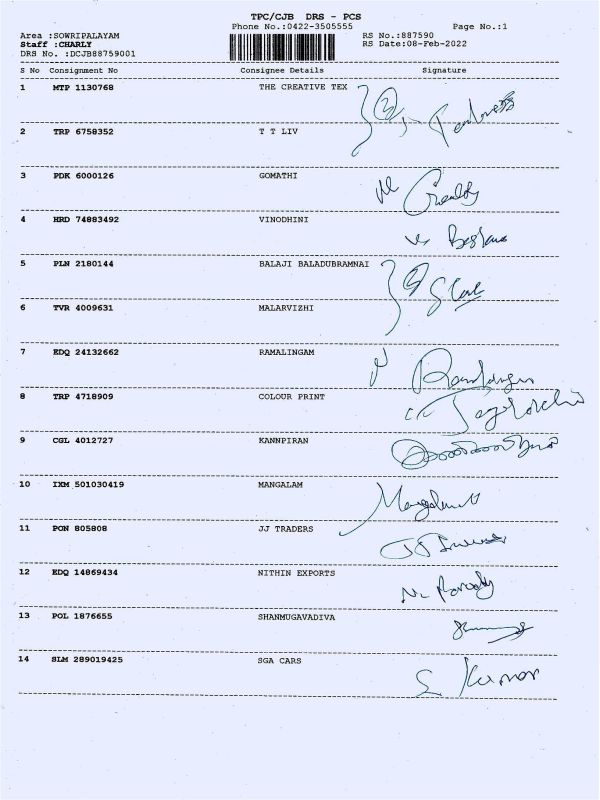 TPC/CJB DRS - PCS
Phone No.:0422-3505555 Page No.:1
Area :SOWRIPALAYAM RS No.:887590
Staff :CHARLY RS Date:08-Feb-2022
DRS No. :DCJB88759001
S No Consignment No Consignee Details Signature
1 MTP 1130768 THE CREATIVE TEX
2 TRP 6758352 T T LIV
3 PDK 6000126 GOMATHI
4 HRD 74883492 VINODHINI
5 PLN 2180144 BALAJI BALADUBRAMNAI
6 TVR 4009631 MALARVIZHI
7 EDQ 24132662 RAMALINGAM
8 TRP 4718909 COLOUR PRINT
9 CGL 4012727 KANNPIRAN
10 IXM 501030419 MANGALAM
11 PON 805808 JJ TRADERS
12 EDQ 14869434 NITHIN EXPORTS
13 POL 1876655 SHANMUGAVADIVA
14 SLM 289019425 SGA CARS S Kumar